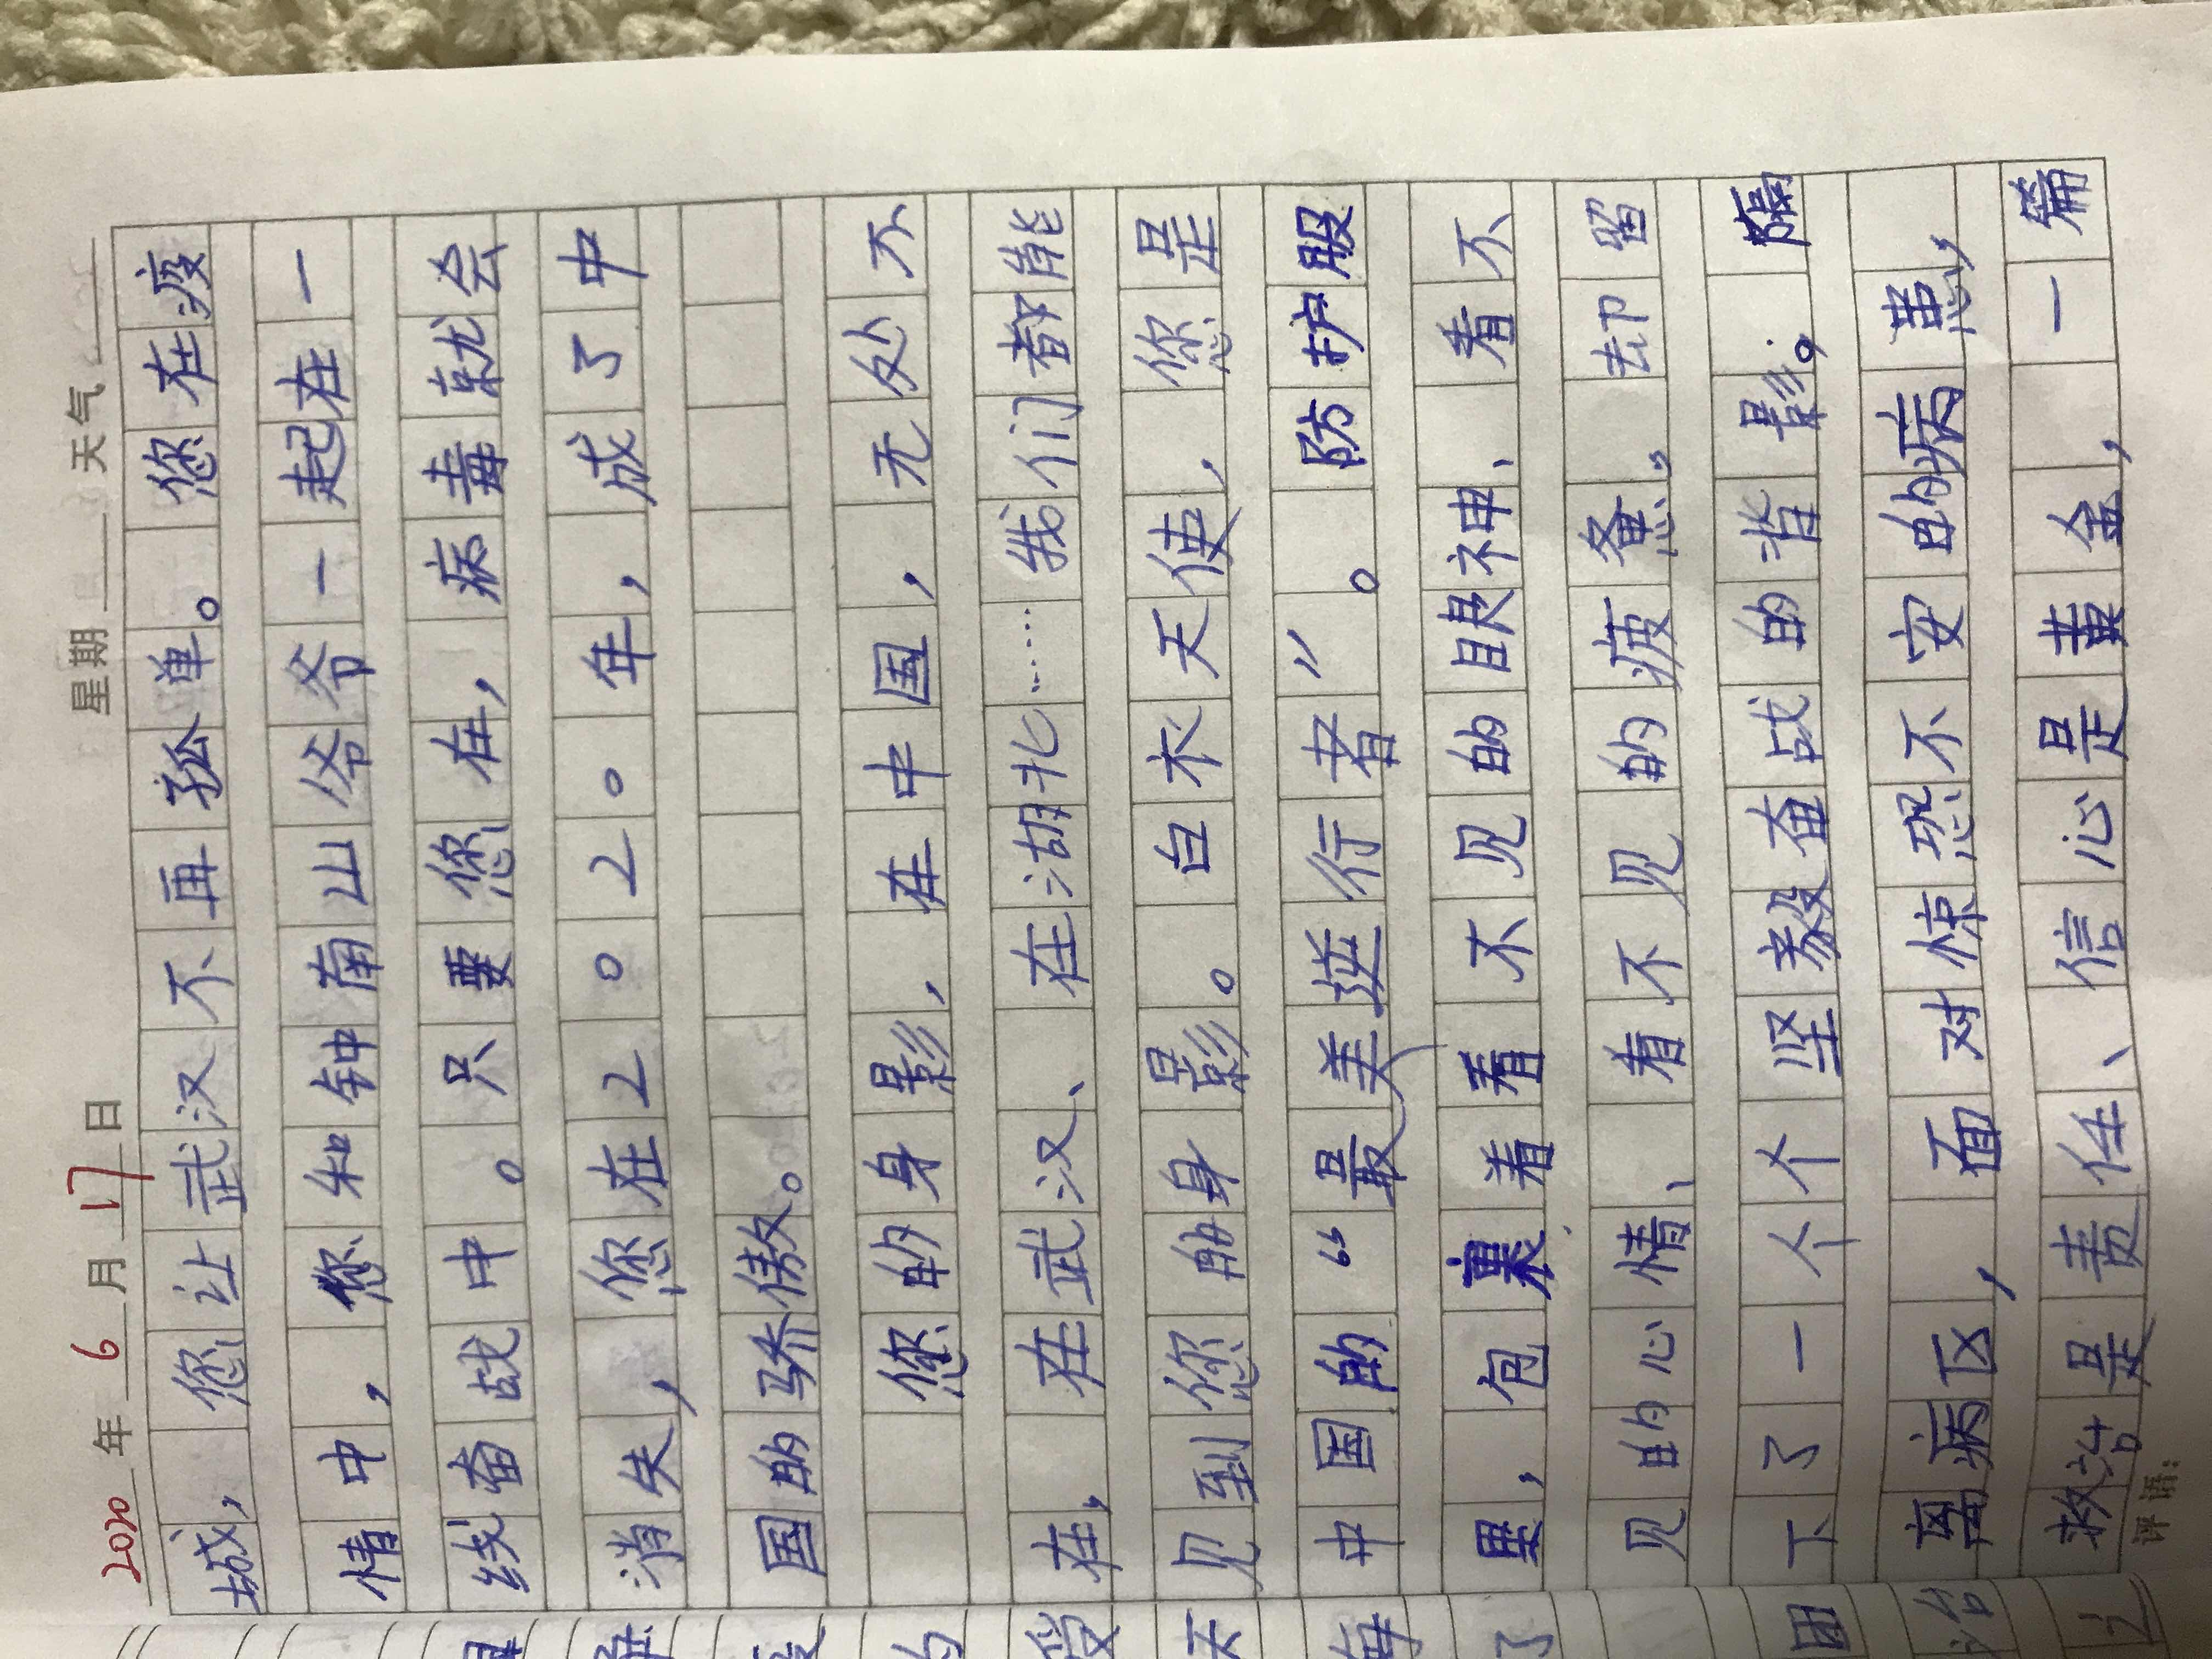 2020年6月17日 星期 天气
城，您让武汉不再孤单。您在疫
情中，您和钟南山爷爷一起在一
线奋战中。只要您在，病毒就会
消失，您在2020年，成了中
国的骄傲。
您的身影，在中国，无处不
在，在武汉、在湖北……我们都能
见到您的身影。白衣天使，您是
中国的“最美逆行者”。防护服
里，包裹着看不见的眼神、看不
见的心情、看不见的疲惫。却留
下了一个个坚毅奋战的背影。隔
离病区，面对惊恐不安的病患，
救治是责任、信心是黄金，一篇
评语：